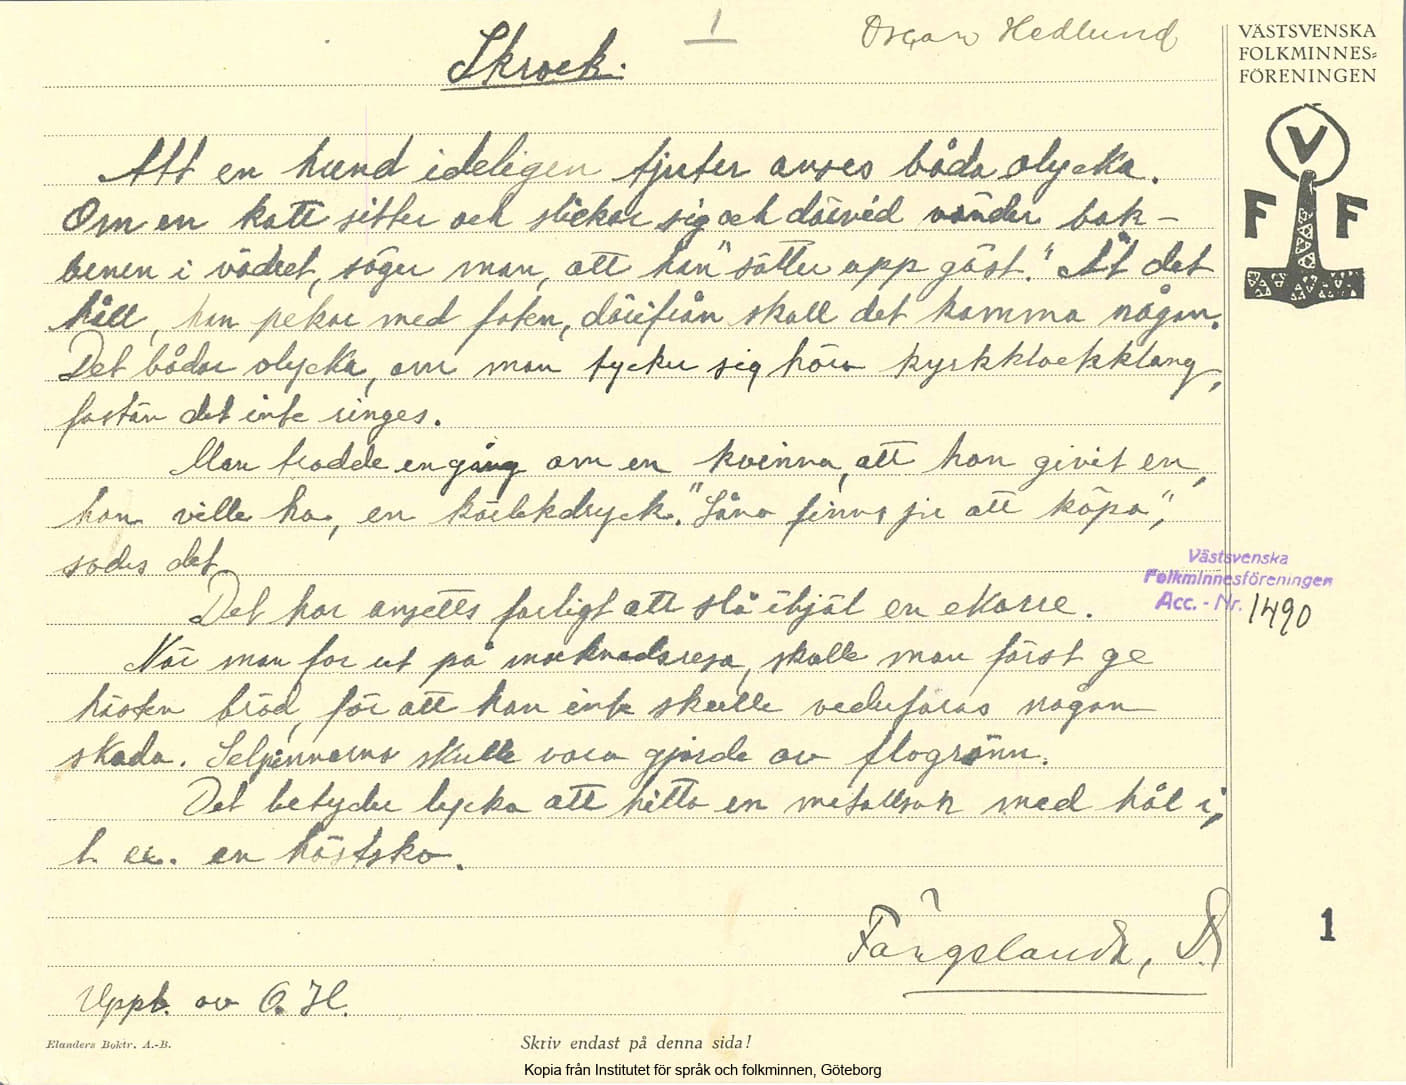 1
Oscar Hedlund
VÄSTSVENSKA
FOLKMINNES=
FÖRENINGEN
Skrock.
V
F F
Att en hund ideligen tjuter anses båda olycka.
Om en katt sitter och slickar sig och därvid vänder bak-
benen i vädret, säger man, att han "sätter upp gäst." Åt det
håll, han pekar med foten, därifrån skall det komma någon.
Det bådar olycka, om man tycker sig höra kyrkklockklang,
fastän det inte ringes.
Man trodde en gång om en kvinna, att hon givit en,
hon ville ha, en kärlekdryck. "Såna finns ju att köpa",
sades det
Det har ansetts farligt att slå ihjäl en ekorre.
När man for ut på marknadsresa, skulle man först ge
hästen bröd, för att han inte skulle vederfaras någon
skada. Selpinnarna skulle vara gjorda av flogrönn.
Det betyder lycka att hitta en metallsak med hål i,
t. ex. en hästsko.
Västsvenska
Folkminnesföreningen
Acc. - Nr. 1490
1
Färgslanda, D
Uppt. av O. H.
Elanders Boktr. A.-B.
Skriv endast på denna sida!
Kopia från Institutet för språk och folkminnen, Göteborg